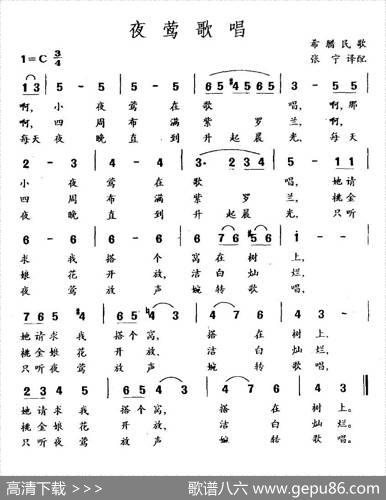 夜莺歌唱
1=C 3/4
希腊民歌
张宁译配
1 3 | 5 - 5 | 5 - 5 | 6 5 #4 5 6 5 | 5 - 1 3 |
啊,小夜莺在歌唱,啊,那
啊,四周布满紫罗兰,啊,
每天夜晚直到升起晨光,每天
2 - 3 | 4 - 4 | 3· 2 3 4 | 5 - 1 1 |
小夜莺在歌唱,她请
四周布满紫罗兰,桃金
夜晚直到升起晨光,只听
6 - 6 | 6 - 6 | 6 7 6 #5 6 | 1 - 7 |
求我搭个窝在树上,
娘花开放,洁白灿烂,
夜莺放声婉转歌唱,
7 6 5 #4 | 5 6 5 4 3 | 4 7 6 | 5 4 3 |
她请求我搭个窝,搭在树上,
桃金娘花开放,洁白灿烂,
只听夜莺放声婉转歌唱,
2 3 4 3 | 5 - 4 2 | 4 7 6 7 | 1 - 1 0
她请求我搭个窝,搭在树上。
桃金娘花开放,洁白灿烂。
只听夜莺放声婉转歌唱。
高清下载 >>>>
歌谱八六 www.gepu86.com